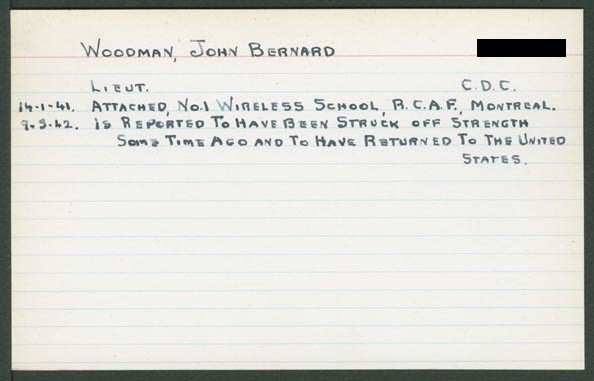 WOODMAN, JOHN BERNARD
LIEUT. C.D.C.
14-1-41. ATTACHED, NO.1 WIRELESS SCHOOL, R.C.A.F., MONTREAL.
9-3-42. IS REPORTED TO HAVE BEEN STRUCK OFF STRENGTH
SOME TIME AGO AND TO HAVE RETURNED TO THE UNITED
STATES.